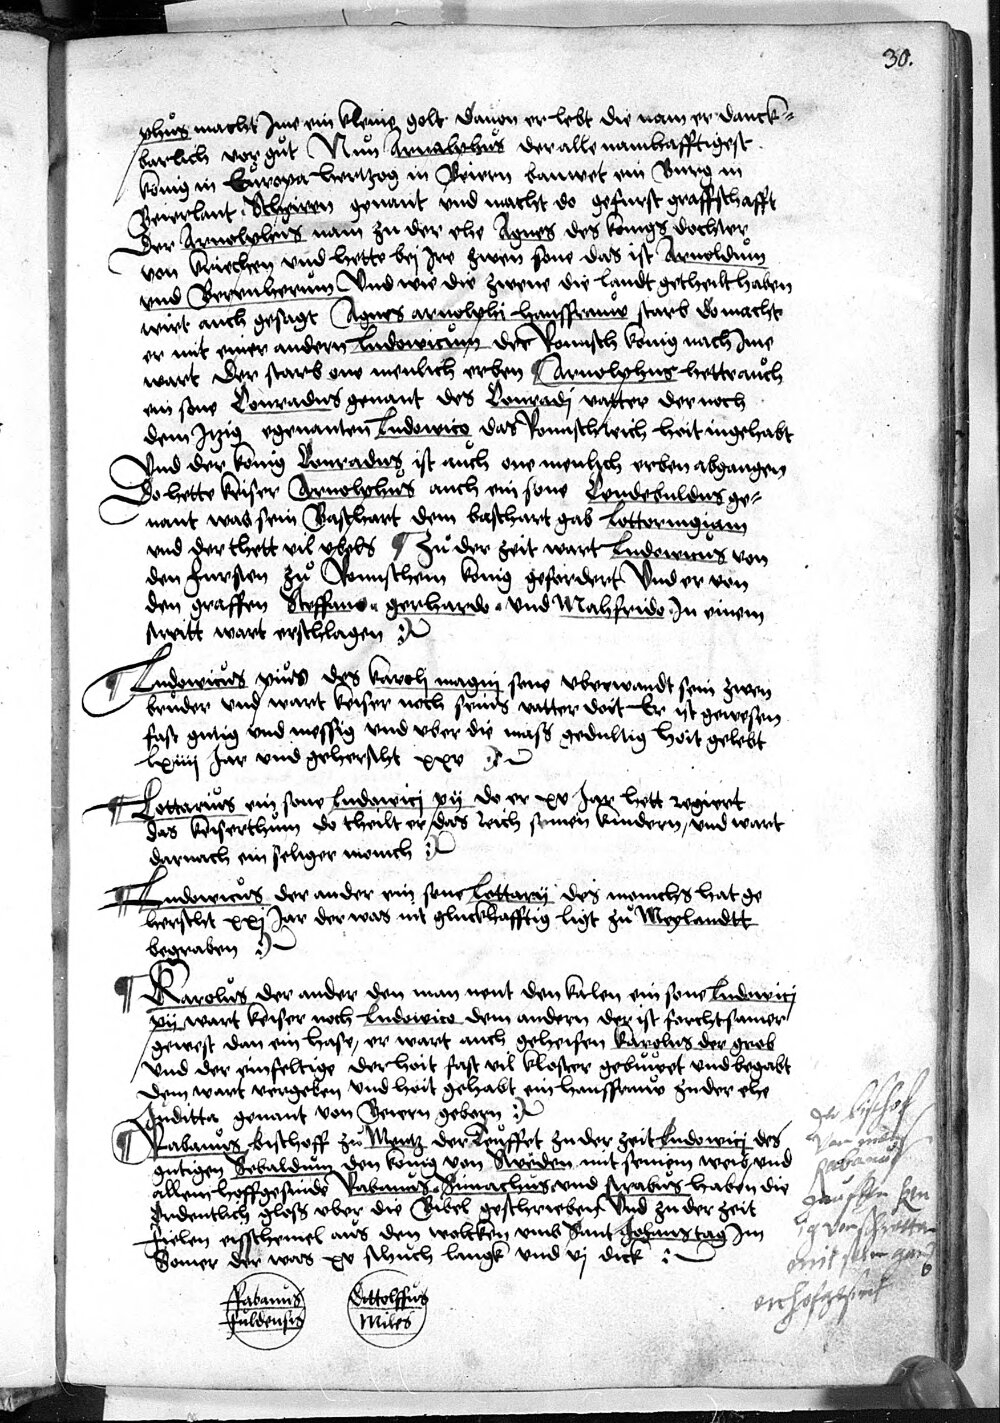 30.
phus macht Ime ein kleine golt dauon er lebt die nam er danck=
barlich vor gut Nun Arnolphus der alle namhafftigest
konig in Europa hertzog in Beiern bauwet ein Burg in
Beierlant Scheiren genant und macht do gefurst graffschafft
Der Arnolphus nam zu der ehe Agnes des konigs dochter
von kriechen und hette bej Ire zwen sone das ist Arnoldum
und Berenherum Und wie die zwene die landt getheilt haben
wirt auch gesagt Agnes arnolphi haussfrauw starb do macht
er mit einer andern Ludowicum der Romisch konig nach Ime
wart Der starb one menlich erben ¶ Arnolphus hette auch
ein sone Conradus genant des Conradj vatter der noch
dem Itzig egenanten Ludowico das Romsch reich hoit ingehabt
Und der konig Conradus ist auch one menlich erben abgangen
Do hette keiser Arnolphus auch ein sone Cendebuldus ge=
nant was sein Basthart dem basthart gab Lottoringiam
und der thett vil ubels ¶ Zu der zeit wart Ludowicus von
den fursten zu Romschem konig gefordert Und er von
den graffen Steffano gerhardo und Mahfrido In einem
stritt wart erschlagen
¶ Ludowicus pius des karolj magnj sone uberwandt sein zwen
bruder und wart keiser noch seins vatter doit Er ist gewesen
fast gutig und messig und uber die mass gedultig hoit gelebt
lxiiij Jar und geherscht xxv
¶ Lottarius ein sone Ludowicj pij do er xv Jar hett regiert
das keiserthum do theilt er das reich seinen kindern, und wart
darnach ein seliger monch
¶ Ludowicus der ander ein sone Lottarij des monchs hat ge
herscht xxj Jar der was nit gluckhafftig ligt zu Meylandtt
begraben
¶ Karolus der ander den man nent den kalen ein sone Ludowicj
pij wart keiser noch Ludowico dem andern der ist forchtsamer
gewest dan ein hase, er wart auch geheisen karolus der grob
und der einfeltige der hoit fast vil kloster gebuwet und begabt
dem wart vergeben und hoit gehabt ein haussfrauw zu der ehe
Juditta genant von Beiern geborn
¶ Rabanus bischoff zu Mentz der teuffet zu der zeit Ludowicj des
gutigen Sebaldum den konig von Sweden mit seinem weib und
allem hoffgesinde Rabanus Simachus und Strabus haben die
Ordentlich gloss uber die Bibel geschrieben Und zu der zeit
fielen eissschemel aus den wolcken umb Sant Johanstag Im
Somer der was xv schuch langk und vj dick
Rabanus
fuldensis
Dittolffus
Miles
der bischof
von mentz
Rabanus
mit sein